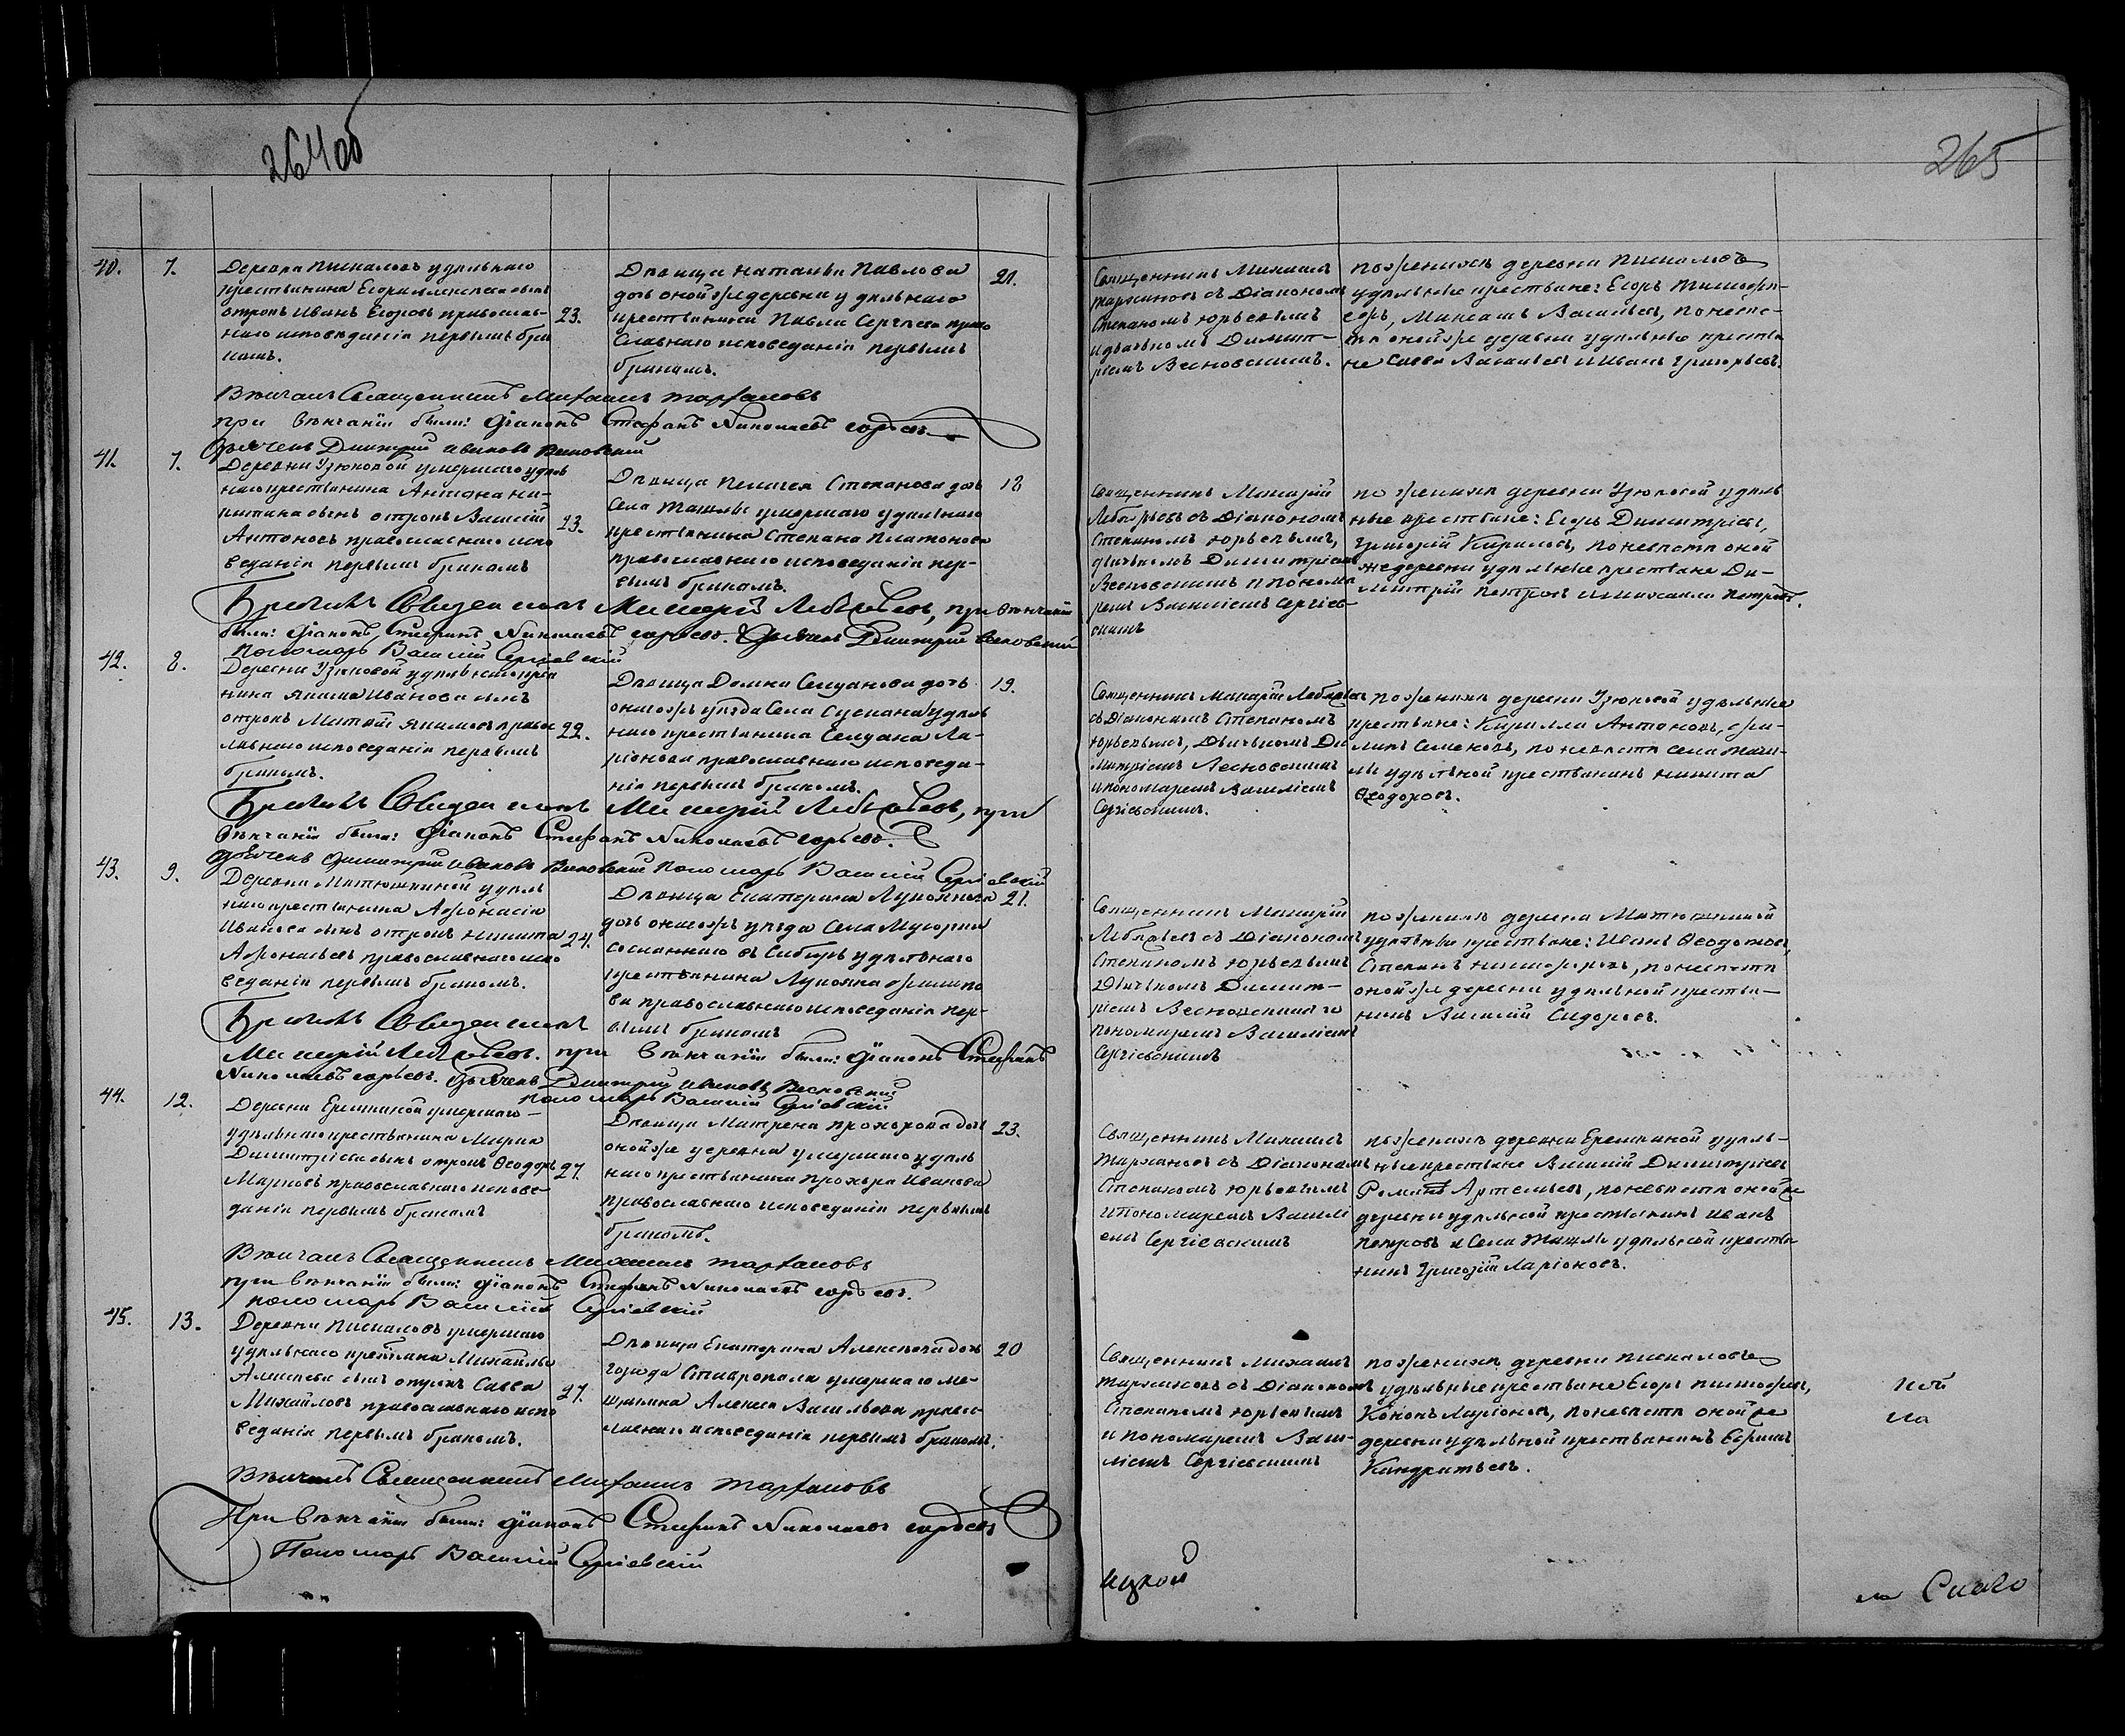 264 об
265
40.
7.
Деревни Пискаловъ удѣльнаго
крестьянина Егора Алексеева сынъ
отрокъ Иванъ Егоровъ православ-
наго исповѣданія первымъ бра
комъ.
23.
Дѣвица Наталья Павлова
дочь оной же деревни удѣльнаго
крестьянина Павла Сергѣева право
славнаго исповеданія первымъ
бракомъ.
21.
Священникъ Михаилъ
съ Діакономъ
Степаномъ Юрьевымъ
и дьячкомъ Димит-
ріемъ Весновскимъ.
по женихѣ деревни Пискаловъ
удѣльные крестьяне: Егоръ Тимофе-
евъ, Михаилъ Васильевъ, по невѣс-
тѣ оной же деревни удѣльные крестья
не Савва Васильевъ и Иванъ Григорьевъ.
Вѣнчалъ Священникъ Михаилъ
при вѣнчаніи были: Діаконъ Стефанъ Николаевъ Юрьевъ
Дьячекъ Димитрій Ивановъ Весновскій
41.
7.
Деревни Узюковой умершаго удѣль
наго крестьянина Антона Ни-
китина сынъ отрокъ Василій
Антоновъ православнаго испо
веданія первымъ бракомъ
23.
Дѣвица Пелагея Степанова дочь
села Ташлы умершаго удѣльнаго
крестьянина Степана Платонова
православнаго исповеданія пер-
вымъ бракомъ.
18
Священникъ Макарій
Лебяжьевъ съ Діакономъ
Степаномъ Юрьевымъ,
дьячкомъ Димитріемъ
Весновскимъ и понома
ремъ Василіемъ Сергіев-
скимъ
по женихѣ деревни Узюковой удѣль
ные крестьяне: Егоръ Димитріевъ,
Григорій Кириловъ, по невѣстѣ оной
же деревни удѣльные крестьяне Ди-
митрій Петровъ и Михаилъ Петровъ.
Бракъ Священникъ Макарій Лебяжьевъ, при вѣнчаніи
были: Діаконъ Стефанъ Николаевъ Юрьевъ. Дьячекъ Димитрій Весновскій
Пономарь Василій Сергіевскій
42.
8.
Деревни Узюковой удѣльнаго кресть
нина Якима Иванова сынъ
отрокъ Матвей Якимовъ право
лавнаго исповеданія первымъ
бракомъ.
22.
Дѣвица Домна Селуанова дочь
онаго жъ уѣзда Села Сускана удѣль
наго крестьянина Селуана Ла-
ріонова православнаго исповеда-
нія первымъ бракомъ.
19.
Священникъ Макарій Лебяжьевъ
съ Діакономъ Степаномъ
Юрьевымъ, дьячкомъ Ди
митріемъ Весновскимъ
и пономаремъ Василіемъ
Сергіевскимъ.
по женихѣ деревни Узюковой удѣльные
крестьяне: Кирилла Антоновъ, Фи-
липъ Семеновъ, по невѣстѣ села Таш-
лы удѣльной крестьянинъ Никита
Ѳеодоровъ.
Бракъ Священникъ Макарій Лебяжьевъ, при
вѣнчаніи были: Діаконъ Стефанъ Николаевъ Юрьевъ.
Дьячекъ Димитрій Ивановъ Весновскій Пономарь Василій Сергіевскій
43.
9.
Деревни Матюшкиной удѣль
наго крестьянина Афонасія
Иванова сынъ отрокъ Никита
Афонасьевъ православнаго испо
веданія первымъ бракомъ.
24.
Дѣвица Екатерина Лукоянова
дочь онаго жъ уѣзда Села Мусорки
сосланнаго въ Сибирь удѣльнаго
крестьянина Лукояна Филипо
ва православнаго исповеданія пер-
вымъ бракомъ
21.
Священникъ Макарій
Лебяжьевъ съ Діакономъ
Степаномъ Юрьевымъ
Дьячкомъ Димит-
ріемъ Весновскимъ и
пономаремъ Василіемъ
Сергіевскимъ
по женихѣ деревни Матюшкиной
удѣльные крестьяне: Иванъ Ѳеодотовъ,
Степанъ Никифоровъ, по невѣстѣ
оной же деревни удѣльной крестья-
нинъ Василій Сидоровъ.
Бракъ Священникъ
Макарій Лебяжьевъ. при вѣнчаніи были: Діаконъ Стефанъ
Николаевъ Юрьевъ. Дьячекъ Димитрій Ивановъ Весновскій
Пономарь Василій Сергіевскій
44.
12.
Деревни Еремкиной умершаго
удѣльнаго крестьянина Марка
Димитріева сынъ отрокъ Ѳеодоръ
Марковъ православнаго испове-
данія первымъ бракомъ
27.
Дѣвица Матрена Прохорова дочь
оной же деревни умершаго удѣль
наго крестьянина Прохора Иванова
православнаго исповеданія первымъ
бракомъ.
23.
Священникъ Михаилъ
съ Діакономъ
Степаномъ Юрьевымъ
и пономаремъ Васили
емъ Сергіевскимъ
по женихѣ деревни Еремкиной удѣль-
ные крестьяне Василій Димитріевъ
Романъ Артемьевъ, по невѣстѣ оной же
деревни удѣльной крестьянинъ Иванъ
Петровъ и Села Ташлы удѣльной крестья
нинъ Григорій Ларіоновъ.
Вѣнчалъ Священникъ Михаилъ
при вѣнчаніи были: Діаконъ Стефанъ Николаевъ Юрьевъ.
Пономарь Василій Сергіевскій
45.
13.
Деревни Пискаловъ умершаго
удѣльнаго крестьянина Михайлы
Алексеева сынъ отрокъ Савва
Михайловъ православнаго испо
веданія первымъ бракомъ.
27.
Дѣвица Екатерина Алексеева дочь
города Ставрополя умершаго ме-
щанина Алексея Васильева право-
славнаго исповеданія первымъ бракомъ.
20
Священникъ Михаилъ
съ Діакономъ
Степаномъ Юрьевымъ
и пономаремъ Васи-
ліемъ Сергіевскимъ
по женихѣ деревни Пискаловъ
удѣльные крестьяне Егоръ Тимофеевъ,
Кононъ Ларіоновъ, по невѣстѣ оной же
деревни удѣльной крестьянинъ Ефимъ
Кандратьевъ.
Вѣнчалъ Священникъ Михаилъ
При вѣнчаніи были: Діаконъ Стефанъ Николаевъ Юрьевъ
Пономарь Василій Сергіевскій